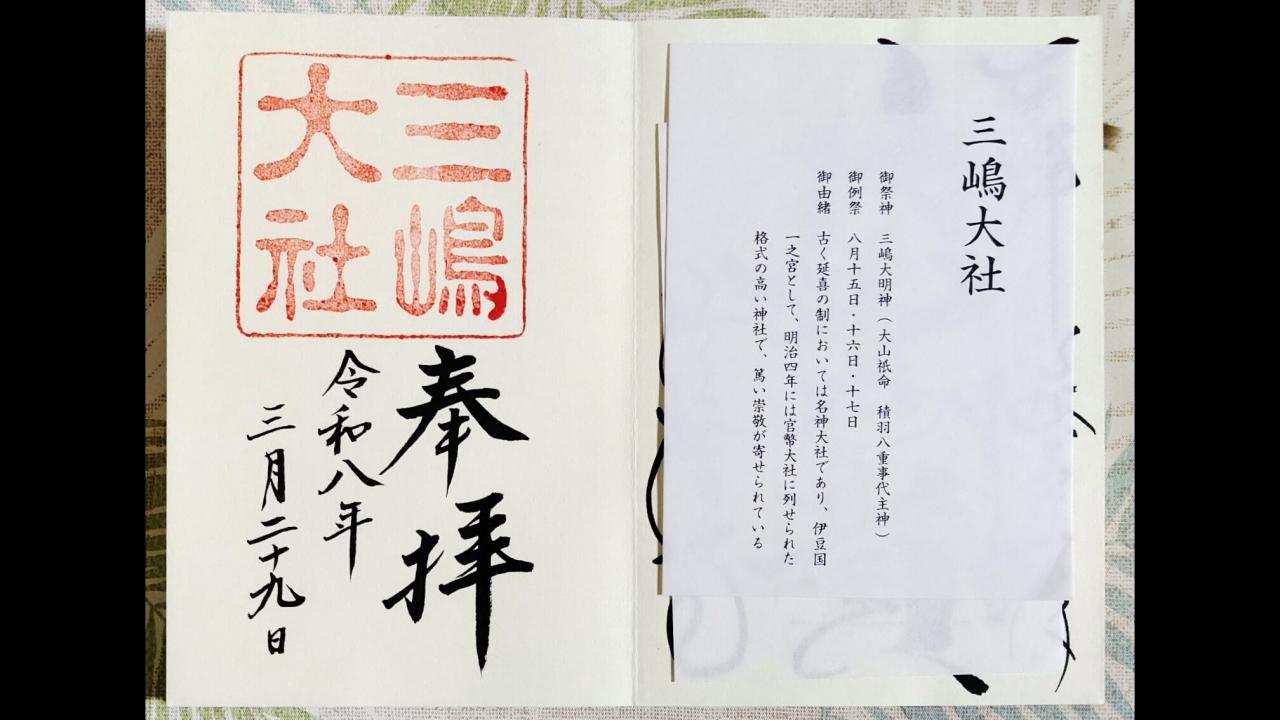 三嶋大社
御祭神 三嶋大明神（大山祇命 積羽八重事代主神）
御例祭 八月十五日・十六日・十七日
御由緒 古く延喜の制においては名神大社であり、伊豆国
一之宮として、明治四年には官幣大社に列せられた
格式の高い神社で、篤い崇敬が寄せられている
三嶋
大社
奉拝
令和八年
三月二十九日